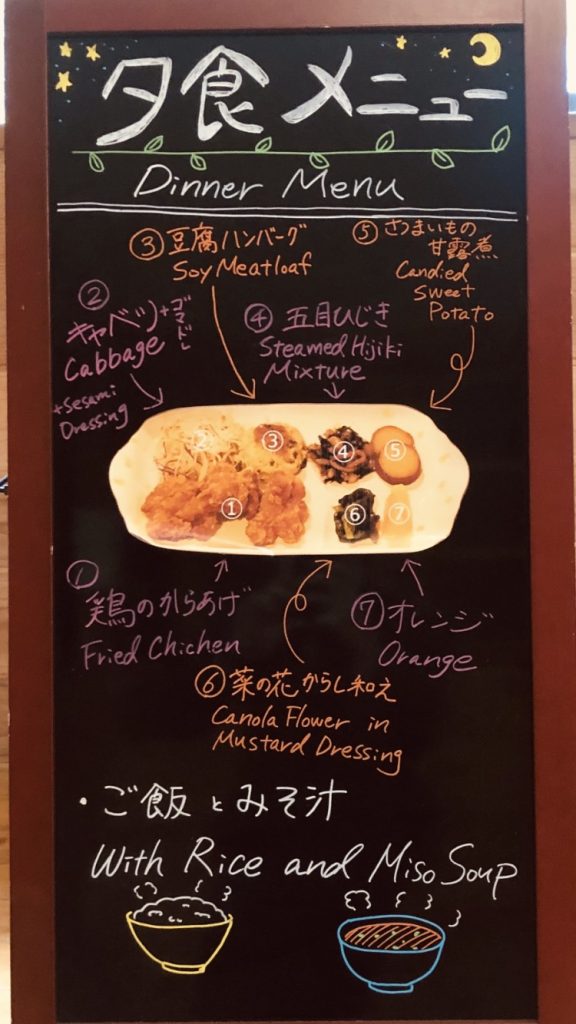 夕食メニュー
Dinner Menu
③豆腐ハンバーグ
Soy Meatloaf
⑤さつまいもの
甘露煮
Candied
Sweet
Potato
②
キャベツ+ゴマドレ
Cabbage
+Sesami
Dressing
④ 五目ひじき
Steamed Hijiki
Mixture
② ③ ④ ⑤
① ⑥ ⑦
①
鶏のからあげ
Fried Chichen
⑦オレンジ
Orange
⑥菜の花からし和え
Canola Flower in
Mustard Dressing
・ご飯とみそ汁
With Rice and Miso Soup